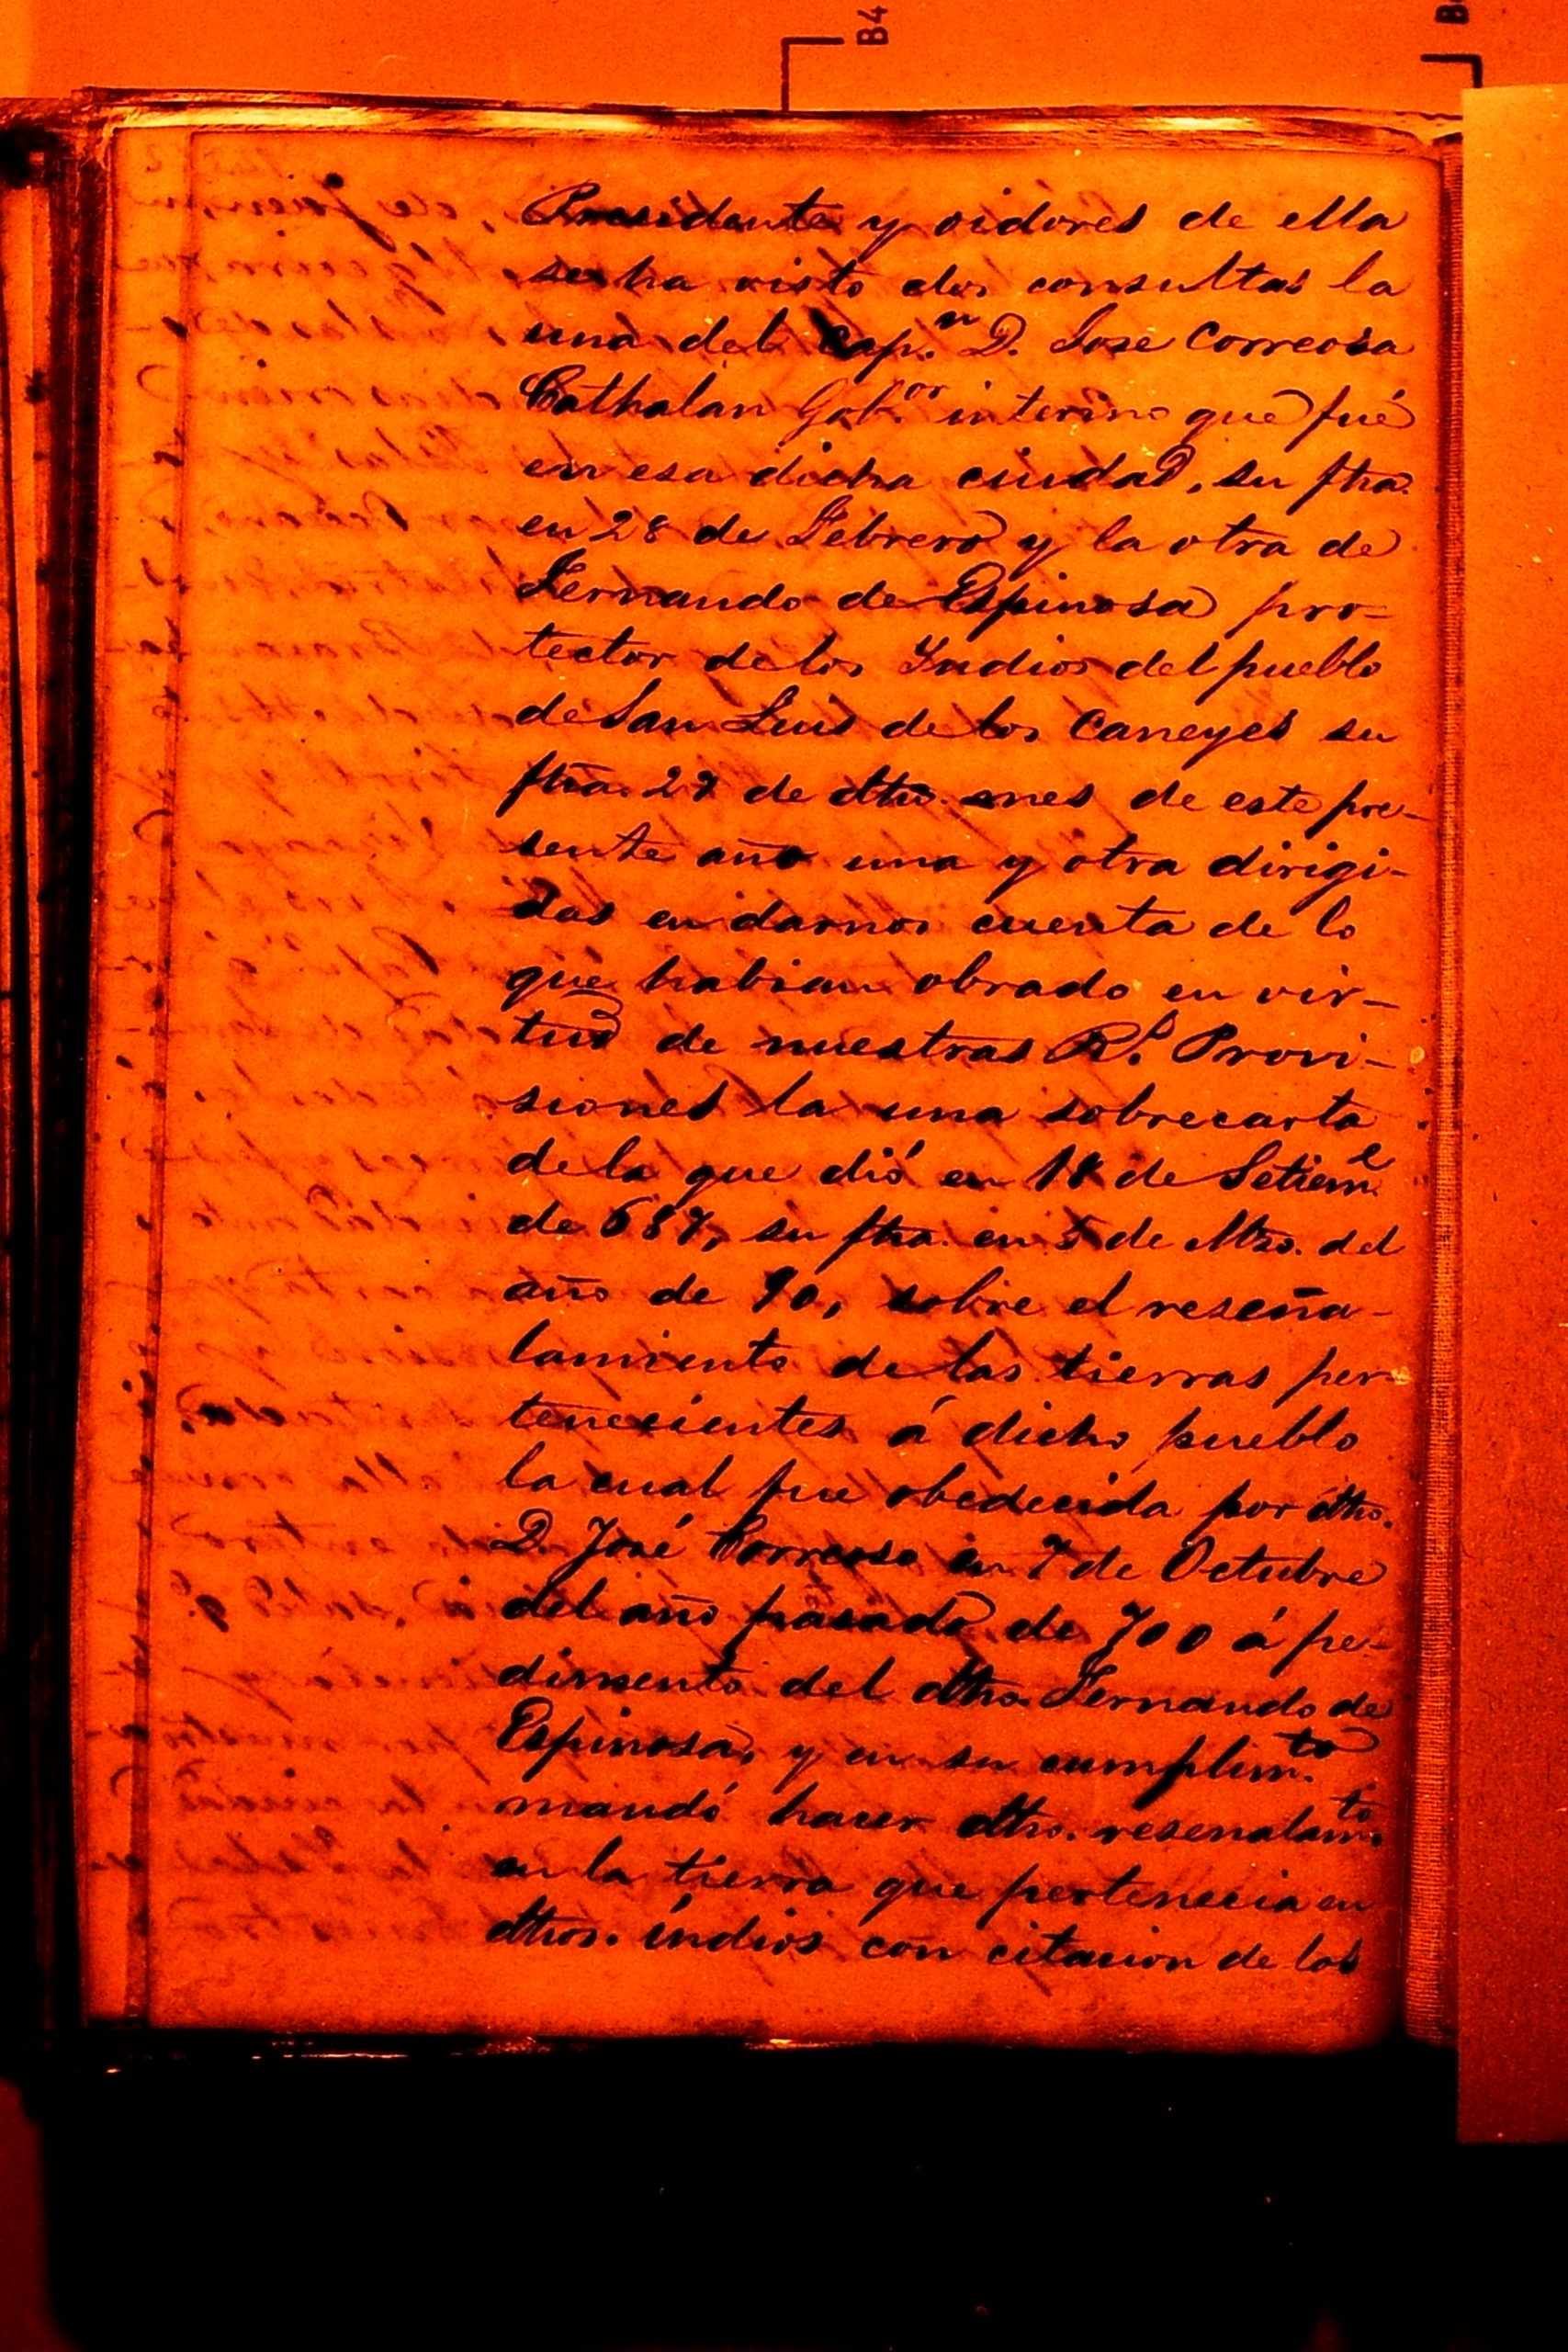 B4
Presidente y oidores de ella
se ha visto dos consultas la
una del Cap.n D. Jose Correosa
Cathalan Gob.or interino que fué
en esa dicha ciudad, su fha.
en 28 de Febrero y la otra de
Fernando de Espinosa pro-
tector de los Yndios del pueblo
de San Luis de los Caneyes su
fha. 27 de dho. mes de este pre-
sente año una y otra dirigi-
das en darnos cuenta de lo
que habian obrado en vir-
tud de nuestras R.s Provi-
siones la una sobrecarta
de la que dió en 18 de Setiem.e
de 687, su fha. en 5 de Mzo. del
año de 90, sobre el reseña-
lamiento de las tierras per-
tenecientes á dicho pueblo
la cual fue obedecida por dho.
D. José Correoso en 7 de Octubre
del año pasado de 700 á pe-
dimento del dho. Fernando de
Espinosa, y en su cumplim.to
mandó hacer dho. resenalam.to
en la tierra que pertenecia en
dhos. indios con citacion de los